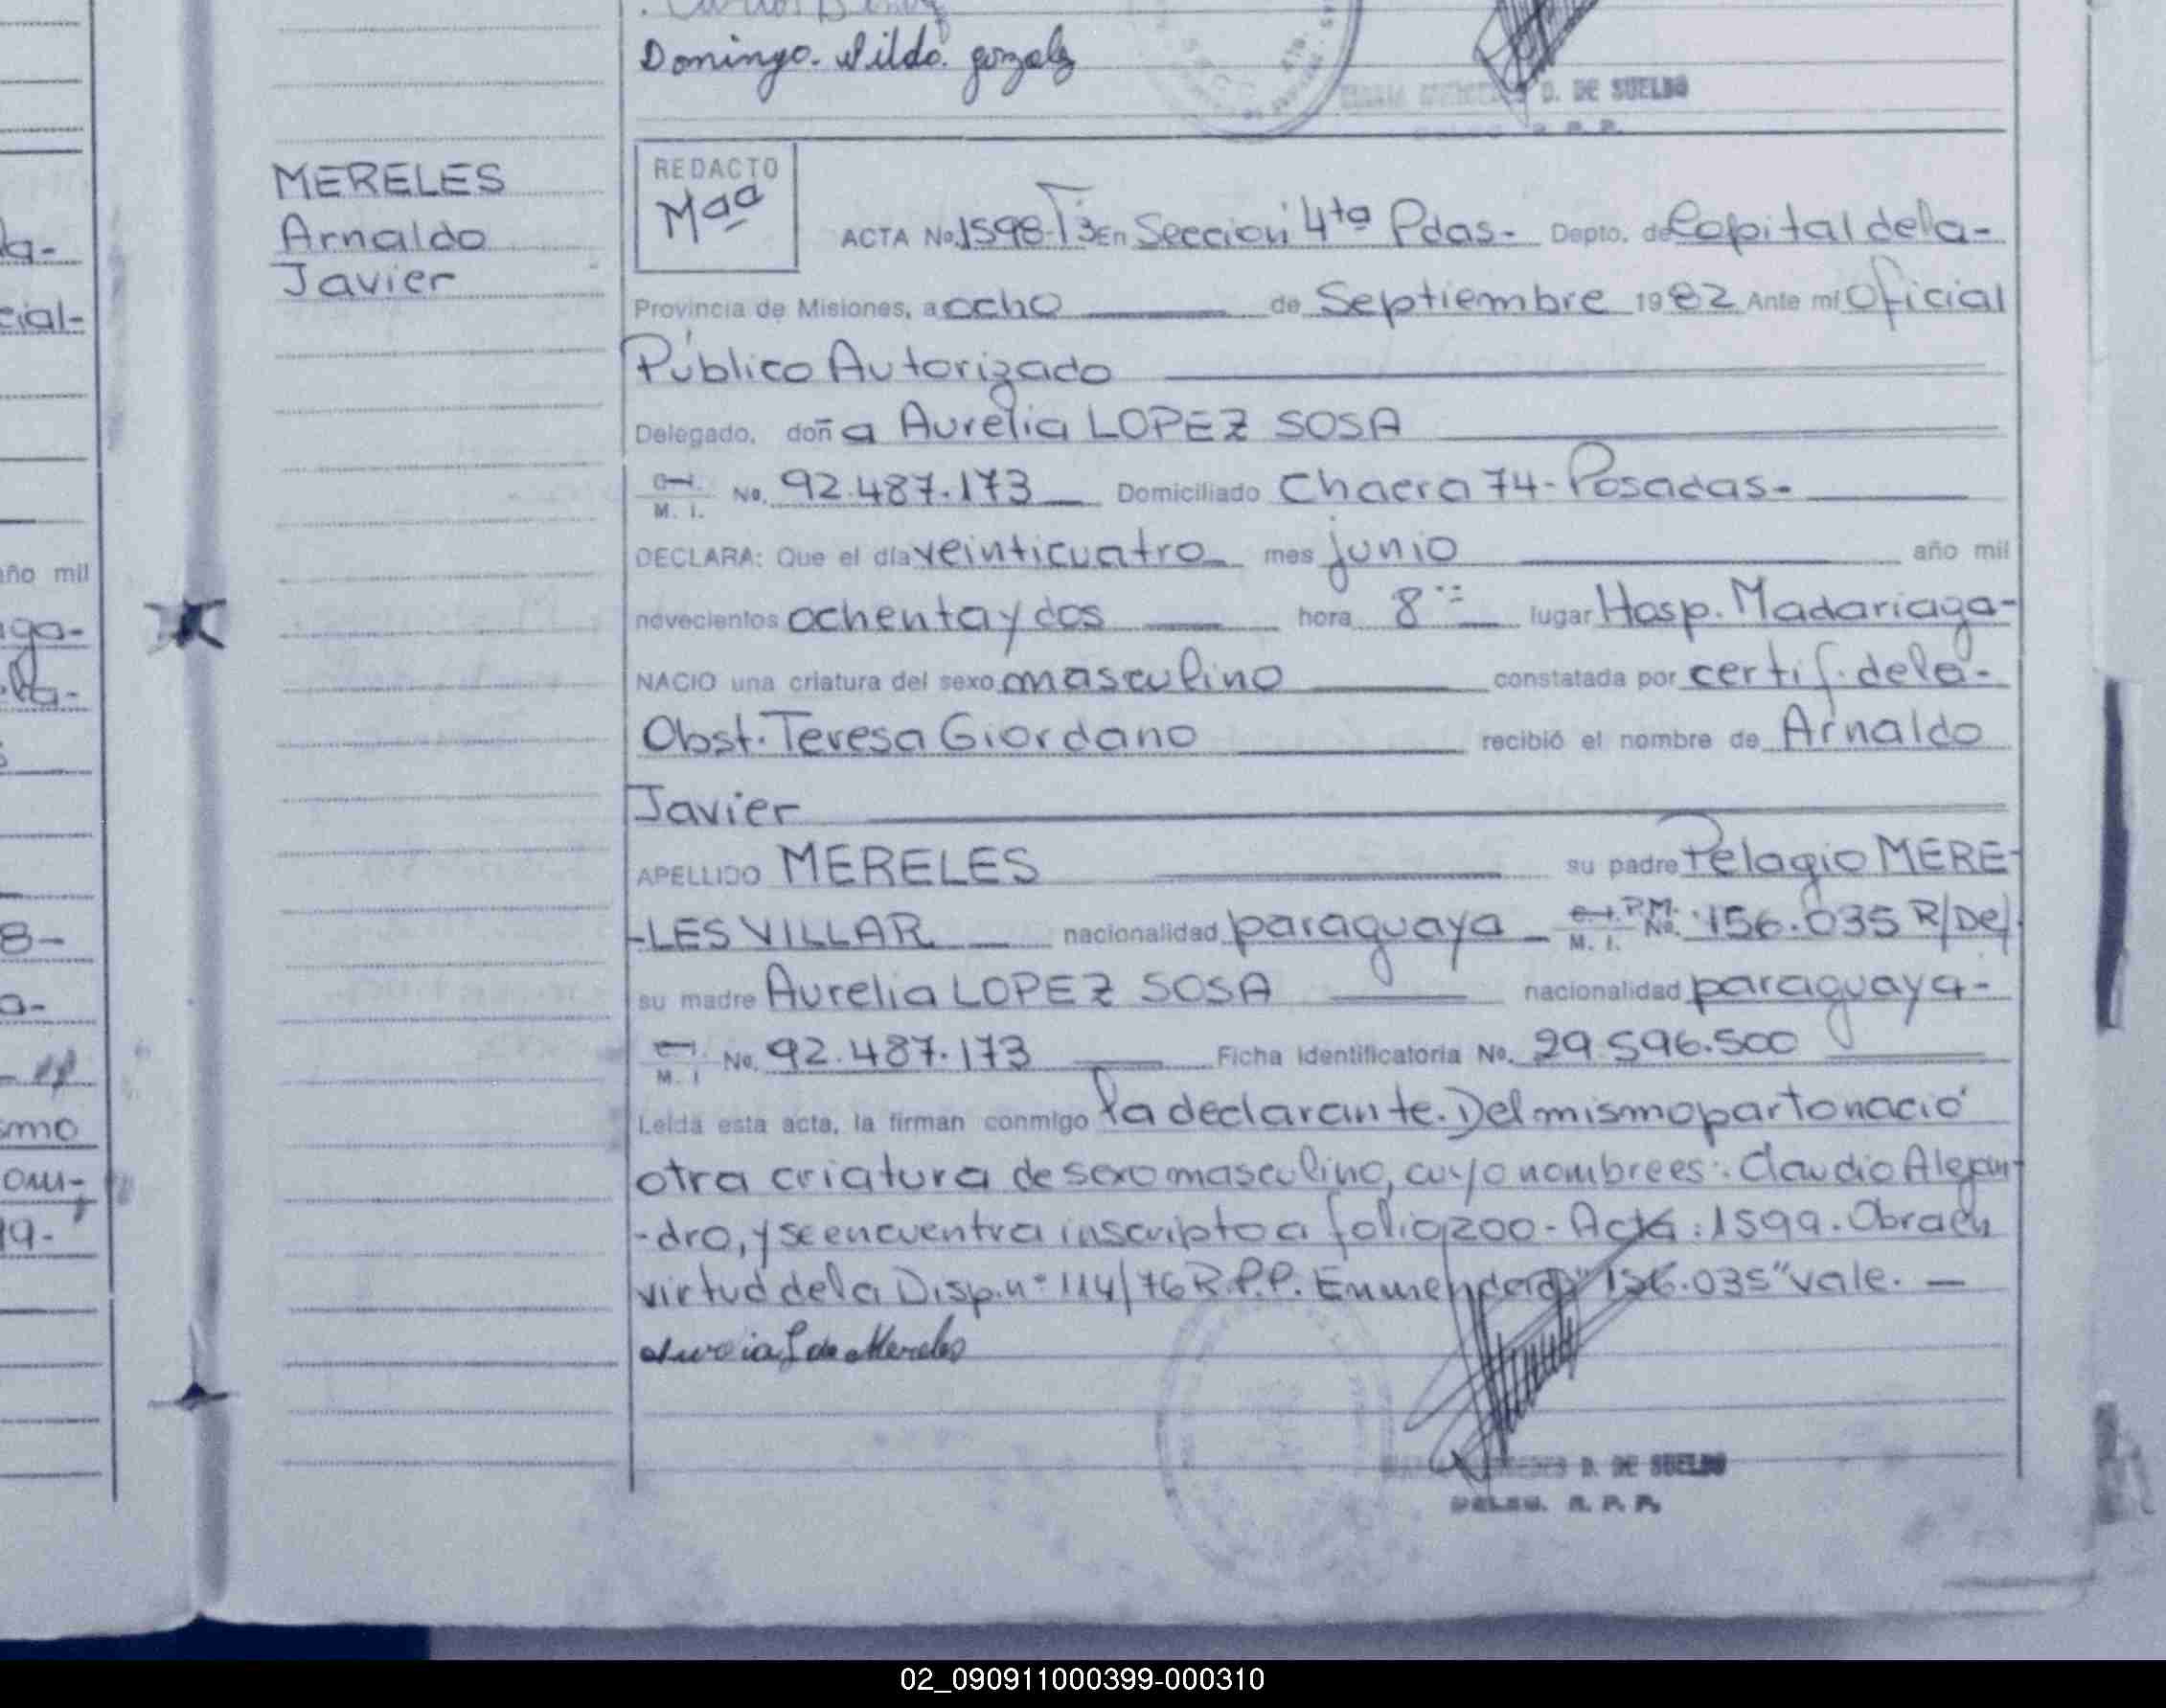 Domingo. Nildo. gonzalez
D. DE SUELDO
R. P. P.
MERELES
Arnaldo
Javier
REDACTO
Maa
ACTA No. 1598-T3 En Sección 4ta Pdas- Depto. de Capital de la-
Provincia de Misiones, a ocho de Septiembre 1982 Ante mí Oficial
Público Autorizado
Delegado, doña Aurelia LOPEZ SOSA
C. I. M. I. No. 92.487.173 Domiciliado Chacra 74- Posadas-
DECLARA: Que el día veinticuatro mes junio año mil
novecientos ochenta y dos hora 8 lugar Hosp. Madariaga-
NACIO una criatura del sexo masculino constatada por certif. de la-
Obst. Teresa Giordano recibió el nombre de Arnaldo
Javier
APELLIDO MERELES su padre Pelagio MERE-
-LES VILLAR nacionalidad paraguaya C. I. M. I. P.M. No. 156.035 R/Del.
su madre Aurelia LOPEZ SOSA nacionalidad paraguaya-
C. I. M. I No. 92.487.173 Ficha Identificatoria No. 29.596.500
Leída esta acta, la firman conmigo la declarante. Del mismo parto nació
otra criatura de sexo masculino, cuyo nombre es: Claudio Alejan-
-dro, y se encuentra inscripto a folio 200 - Acta: 1599. Obra en
virtud de la Disp. nº 114/76 R.P.P. Enmendado "156.035" vale. —
de Mereles
D. DE SUELDO
DELEG. R. P. P.
año mil
8-
a-
smo
19-
02_090911000399-000310